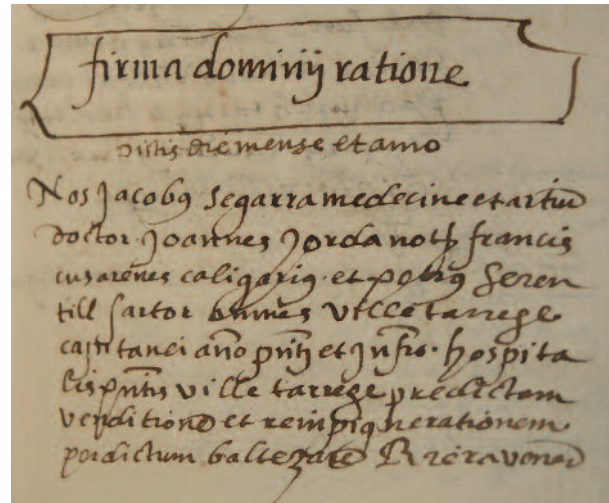 firma dominij ratione
Dictis die mense et anno
Nos Jacobus Segarra medecine et artiũ
doctor Joannes Jorda notʳ francis
cus arenes caligariꝰ et petrus Seren
till sartor omnes ville tarrege
capitanei año pñti et Jnfro hospita
lis pñtis ville tarrege predictam
venditionẽ et reinpignerationem
per dictum baltezarẽ